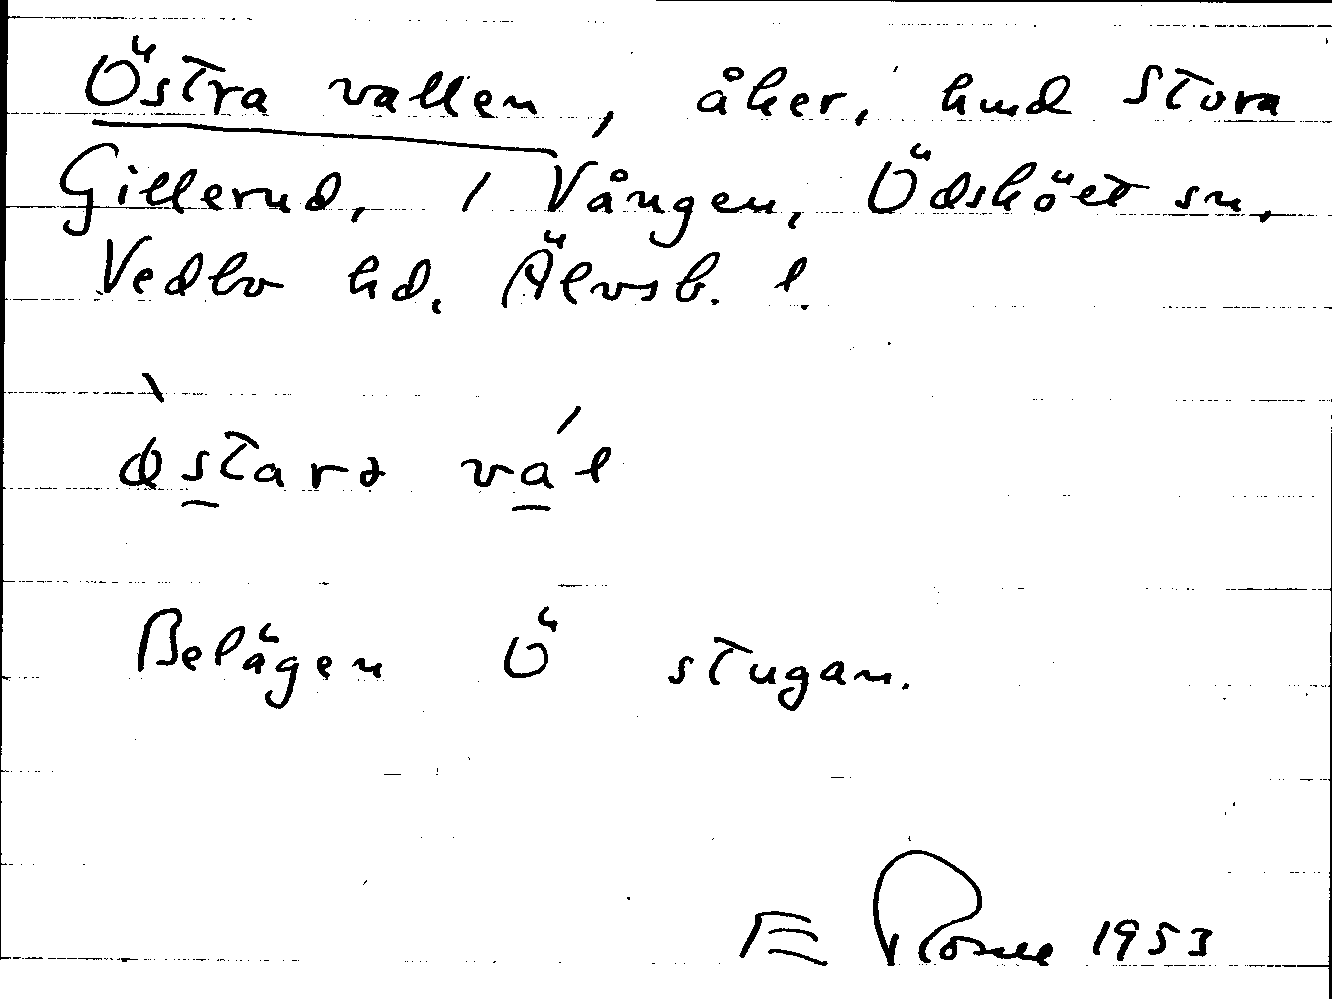 Östra vallen, åker, hmd Stora
Gillerud, 1 Vången, Ödsköet sn,
Vedbo hd. Älvsb. l.
østarə vál
Belägen Ö stugan.
E 1953